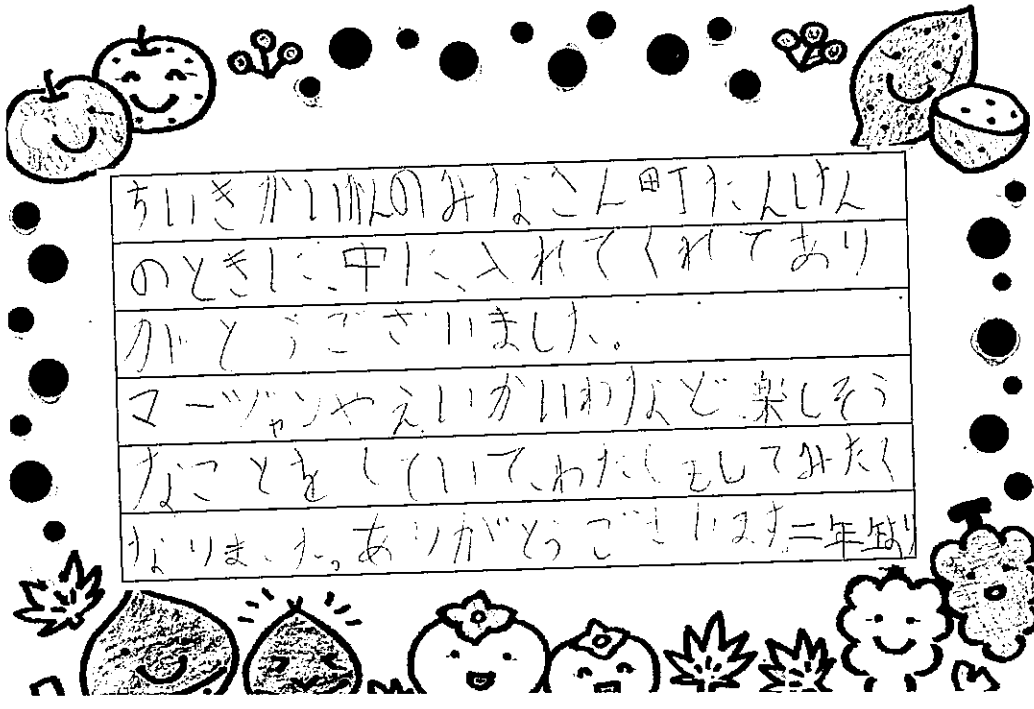 ちいきかいかんのみなさん町たんけん
のときに、中に、入れてくれてあり
がとうございました。
マージャンやえいかいわなど楽しそう
なことをしていて、わたしもしてみたく
なりました。ありがとうございます二年